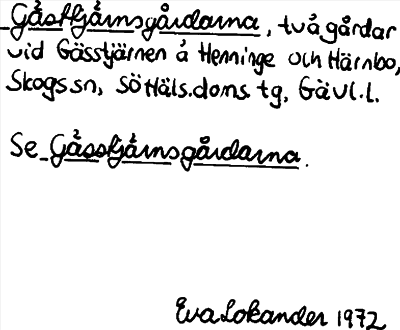 Gåsttjårnsgårdarna, två gårdar
vid Gässtjärnen å Henninge och Härnbo,
Skogs sn, Sö Häls. doms. tg, Gävl. l.
Se Gåsstjårnsgårdarna.
Eva Lokander 1972